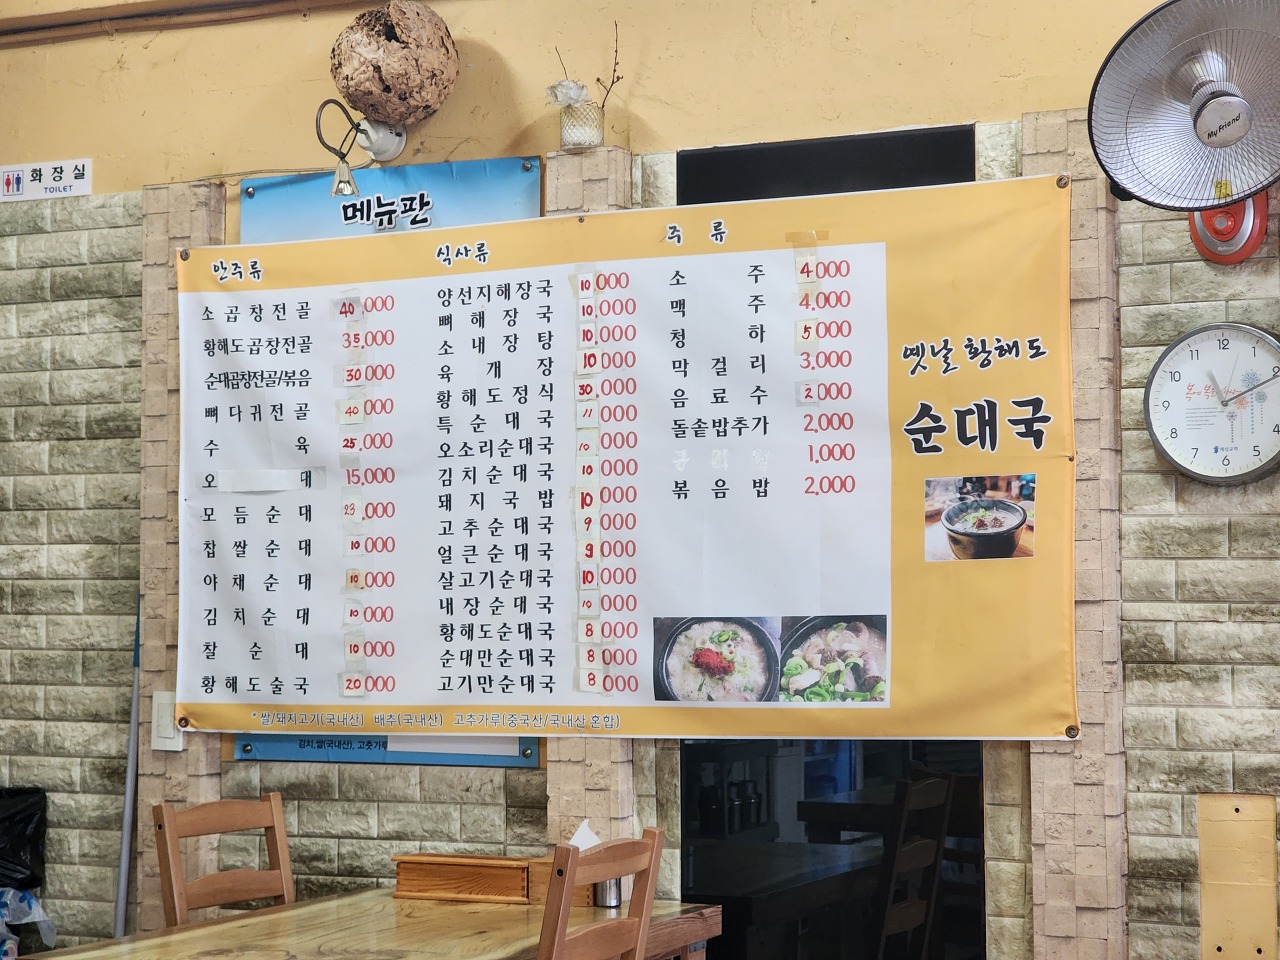 화장실
TOILET
메뉴판
My Friend
안주류
소곱창전골 40,000
황해도곱창전골 35,000
순대곱창전골/볶음 30,000
뼈다귀전골 40,000
수육 25,000
오 대 15,000
모듬순대 23,000
찹쌀순대 10,000
야채순대 10,000
김치순대 10,000
찰순대 10,000
황해도술국 20,000
식사류
양선지해장국 10,000
뼈해장국 10,000
소내장탕 10,000
육개장 10,000
황해도정식 30,000
특순대국 11,000
오소리순대국 10,000
김치순대국 10,000
돼지국밥 10,000
고추순대국 9,000
얼큰순대국 9,000
살고기순대국 10,000
내장순대국 10,000
황해도순대국 8,000
순대만순대국 8,000
고기만순대국 8,000
주류
소주 4,000
맥주 4,000
청하 5,000
막걸리 3,000
음료수 2,000
돌솥밥추가 2,000
1,000
볶음밥 2,000
옛날 황해도
순대국
* 쌀/돼지고기(국내산) 배추(국내산) 고추가루(중국산/국내산 혼합)
김치,쌀(국내산), 고춧가루
12
1
2
3
4
5
6
7
8
9
10
11